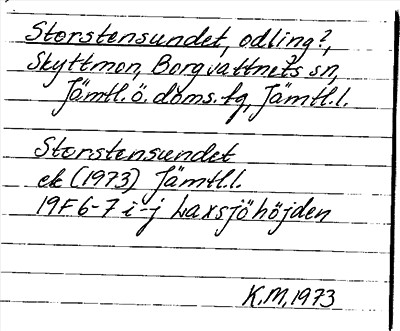 Storstensundet, odling?,
Skyttmon, Borgvattnets sn,
Jämtl.ö. doms.tg, Jämtl.l.
Storstensundet
ek (1973) Jämtl.l.
19F 6-7 i-j Laxsjöhöjden
K.M, 1973